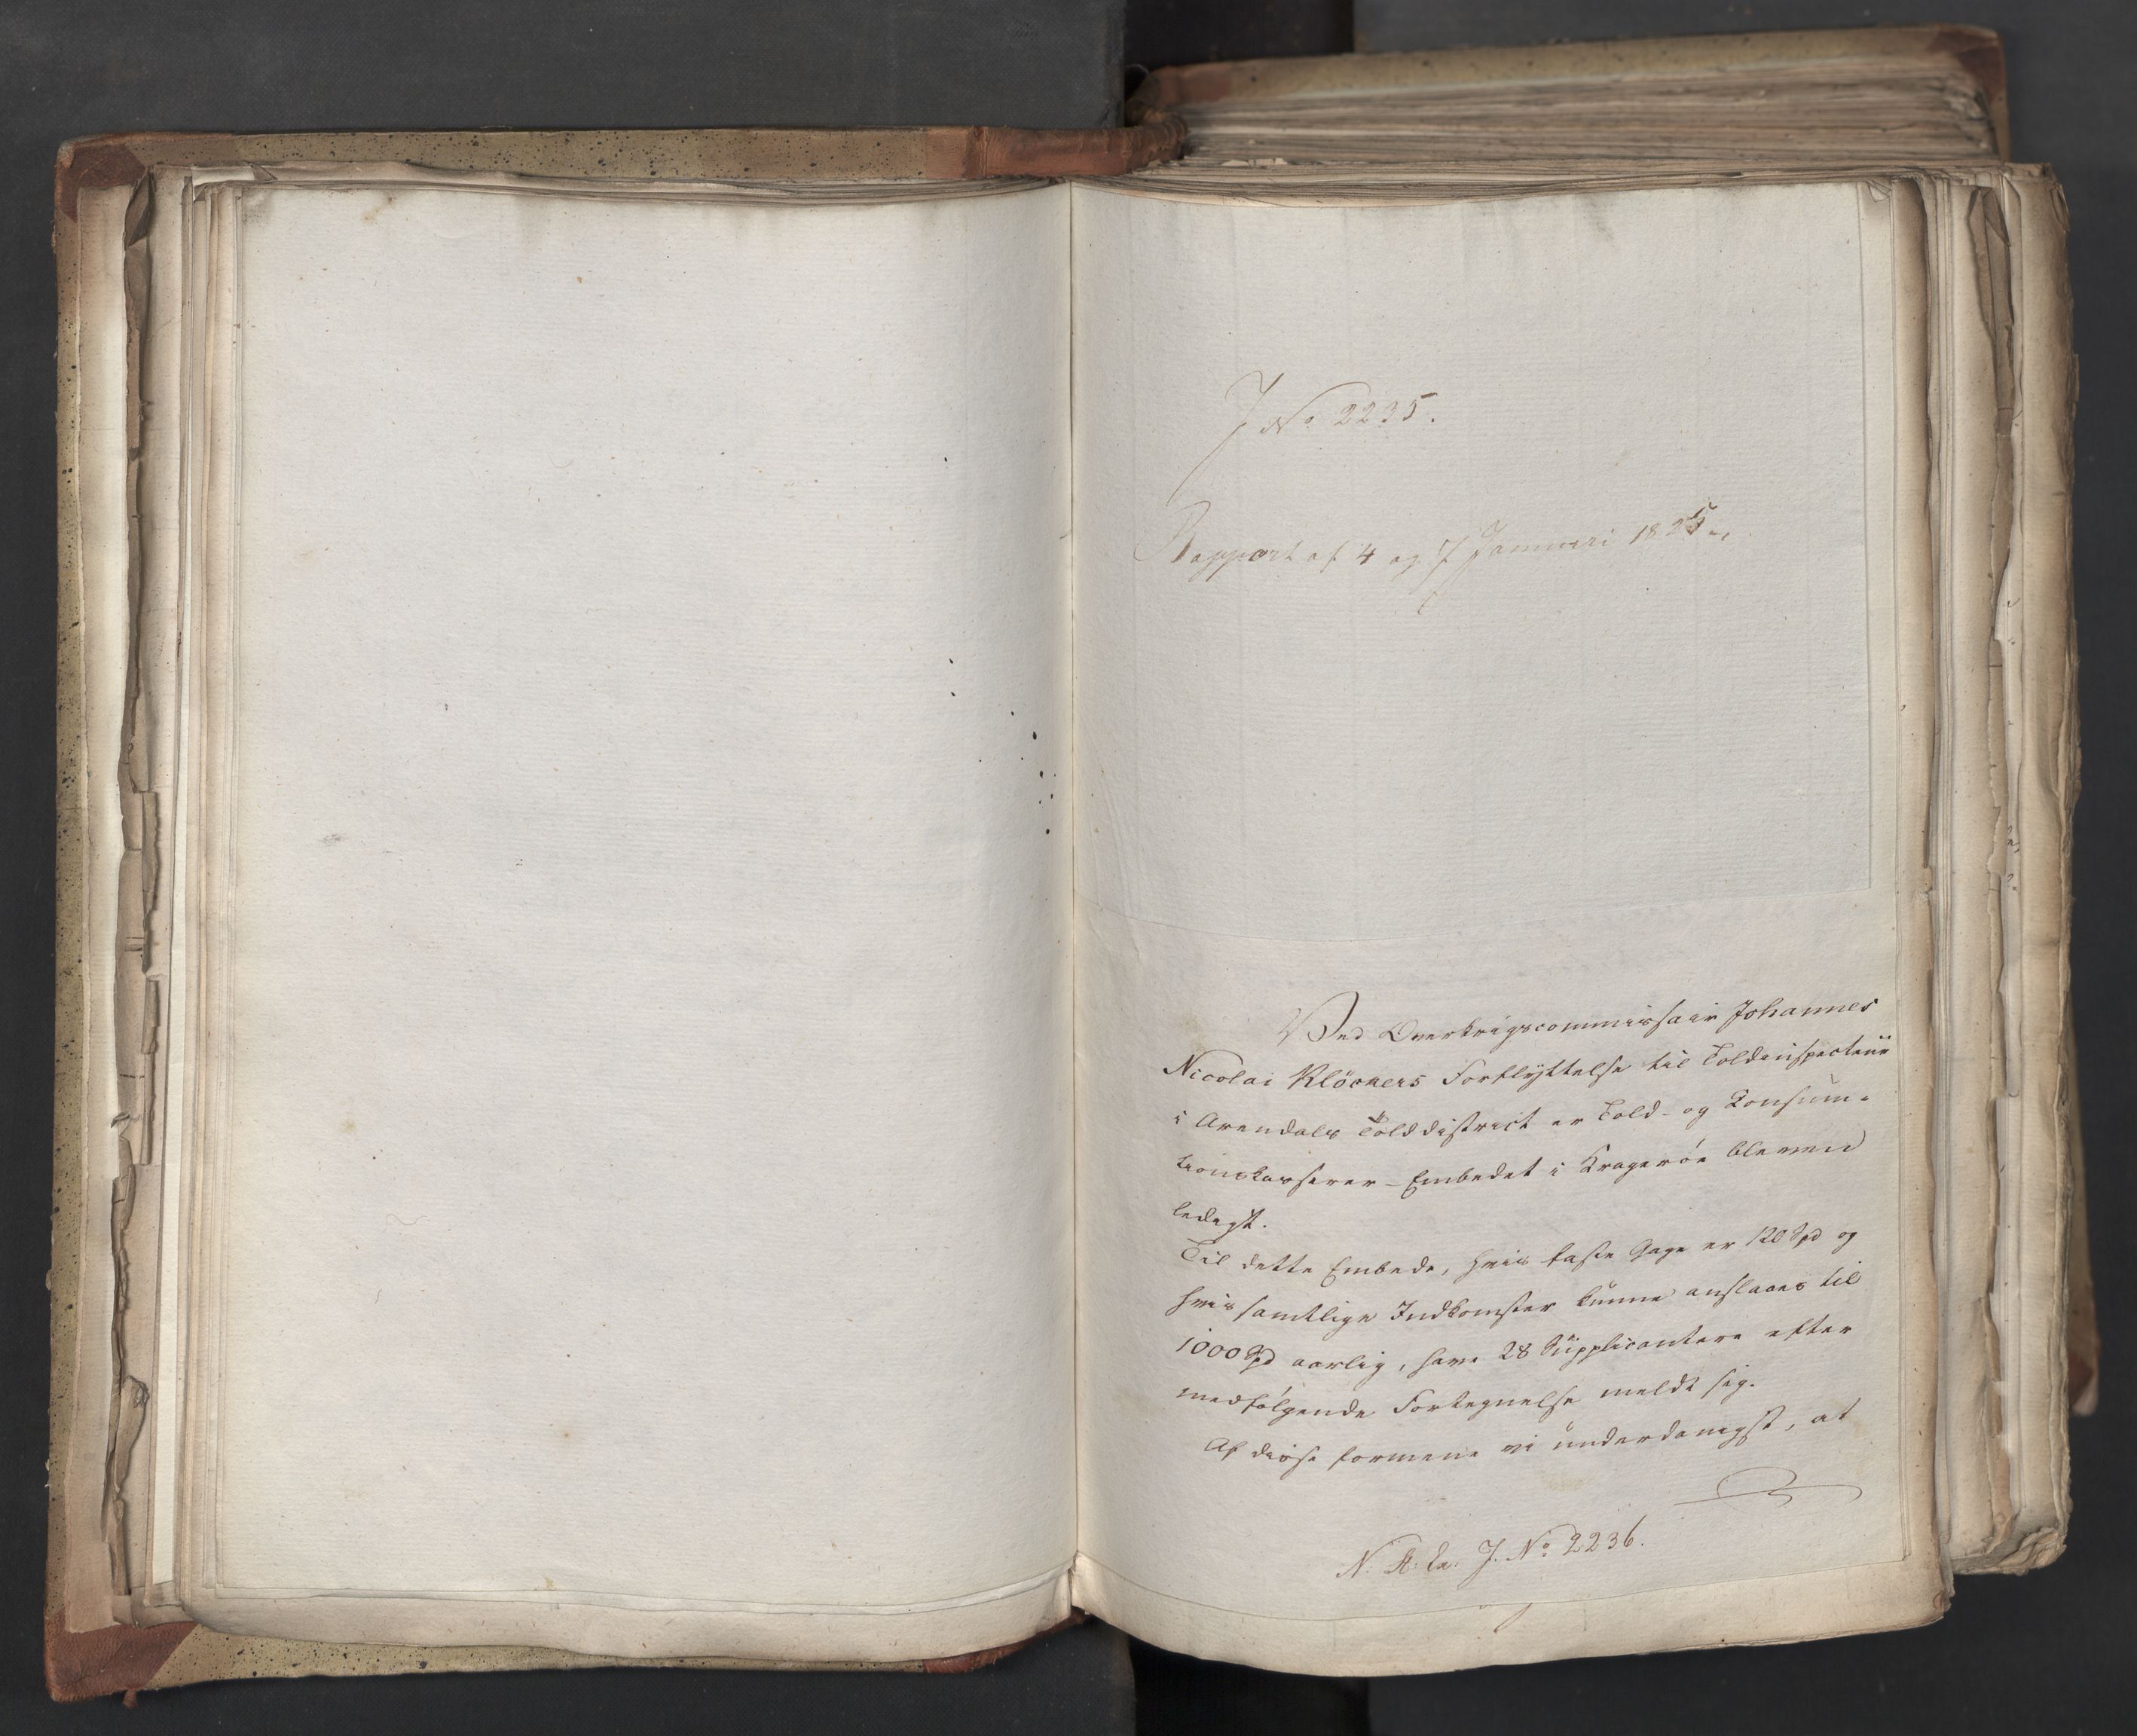 J No 2235.
Rapport af 4 og 7 Januari 1825
Ved Overkrigscommissair Johannes
Nicolai Klöckers Forflyttelse til Toldinspecteur
i Arendals Tolddistrict er Told- og Konsum-
tionskasserer-Embedet i Kragerøe bleven
ledigt.
Til dette Embede, hvis faste Gage er 120 Spd og
hvis samtlige Indkomster kunne anslaaes til
1000 Spd aarlig, have 28 Supplicantere efter
medfølgende Fortegnelse meldt sig.
Af disse formene vi underdanigst, at
J. No 2236.